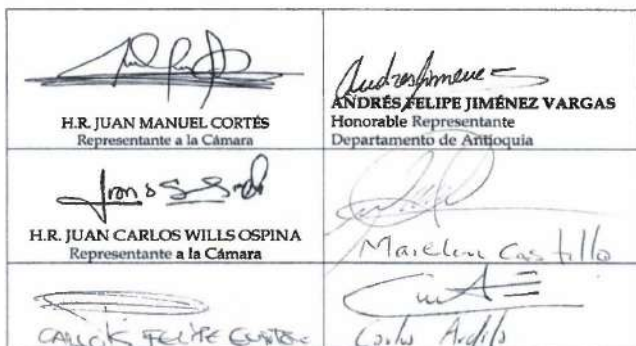 H.R. JUAN MANUEL CORTÉS
Representante a la Cámara
Andres Jimenez
ANDRÉS FELIPE JIMÉNEZ VARGAS
Honorable Representante
Departamento de Antioquia
H.R. JUAN CARLOS WILLS OSPINA
Representante a la Cámara
Marelen Castillo
FELIPE
Carlos Ardila